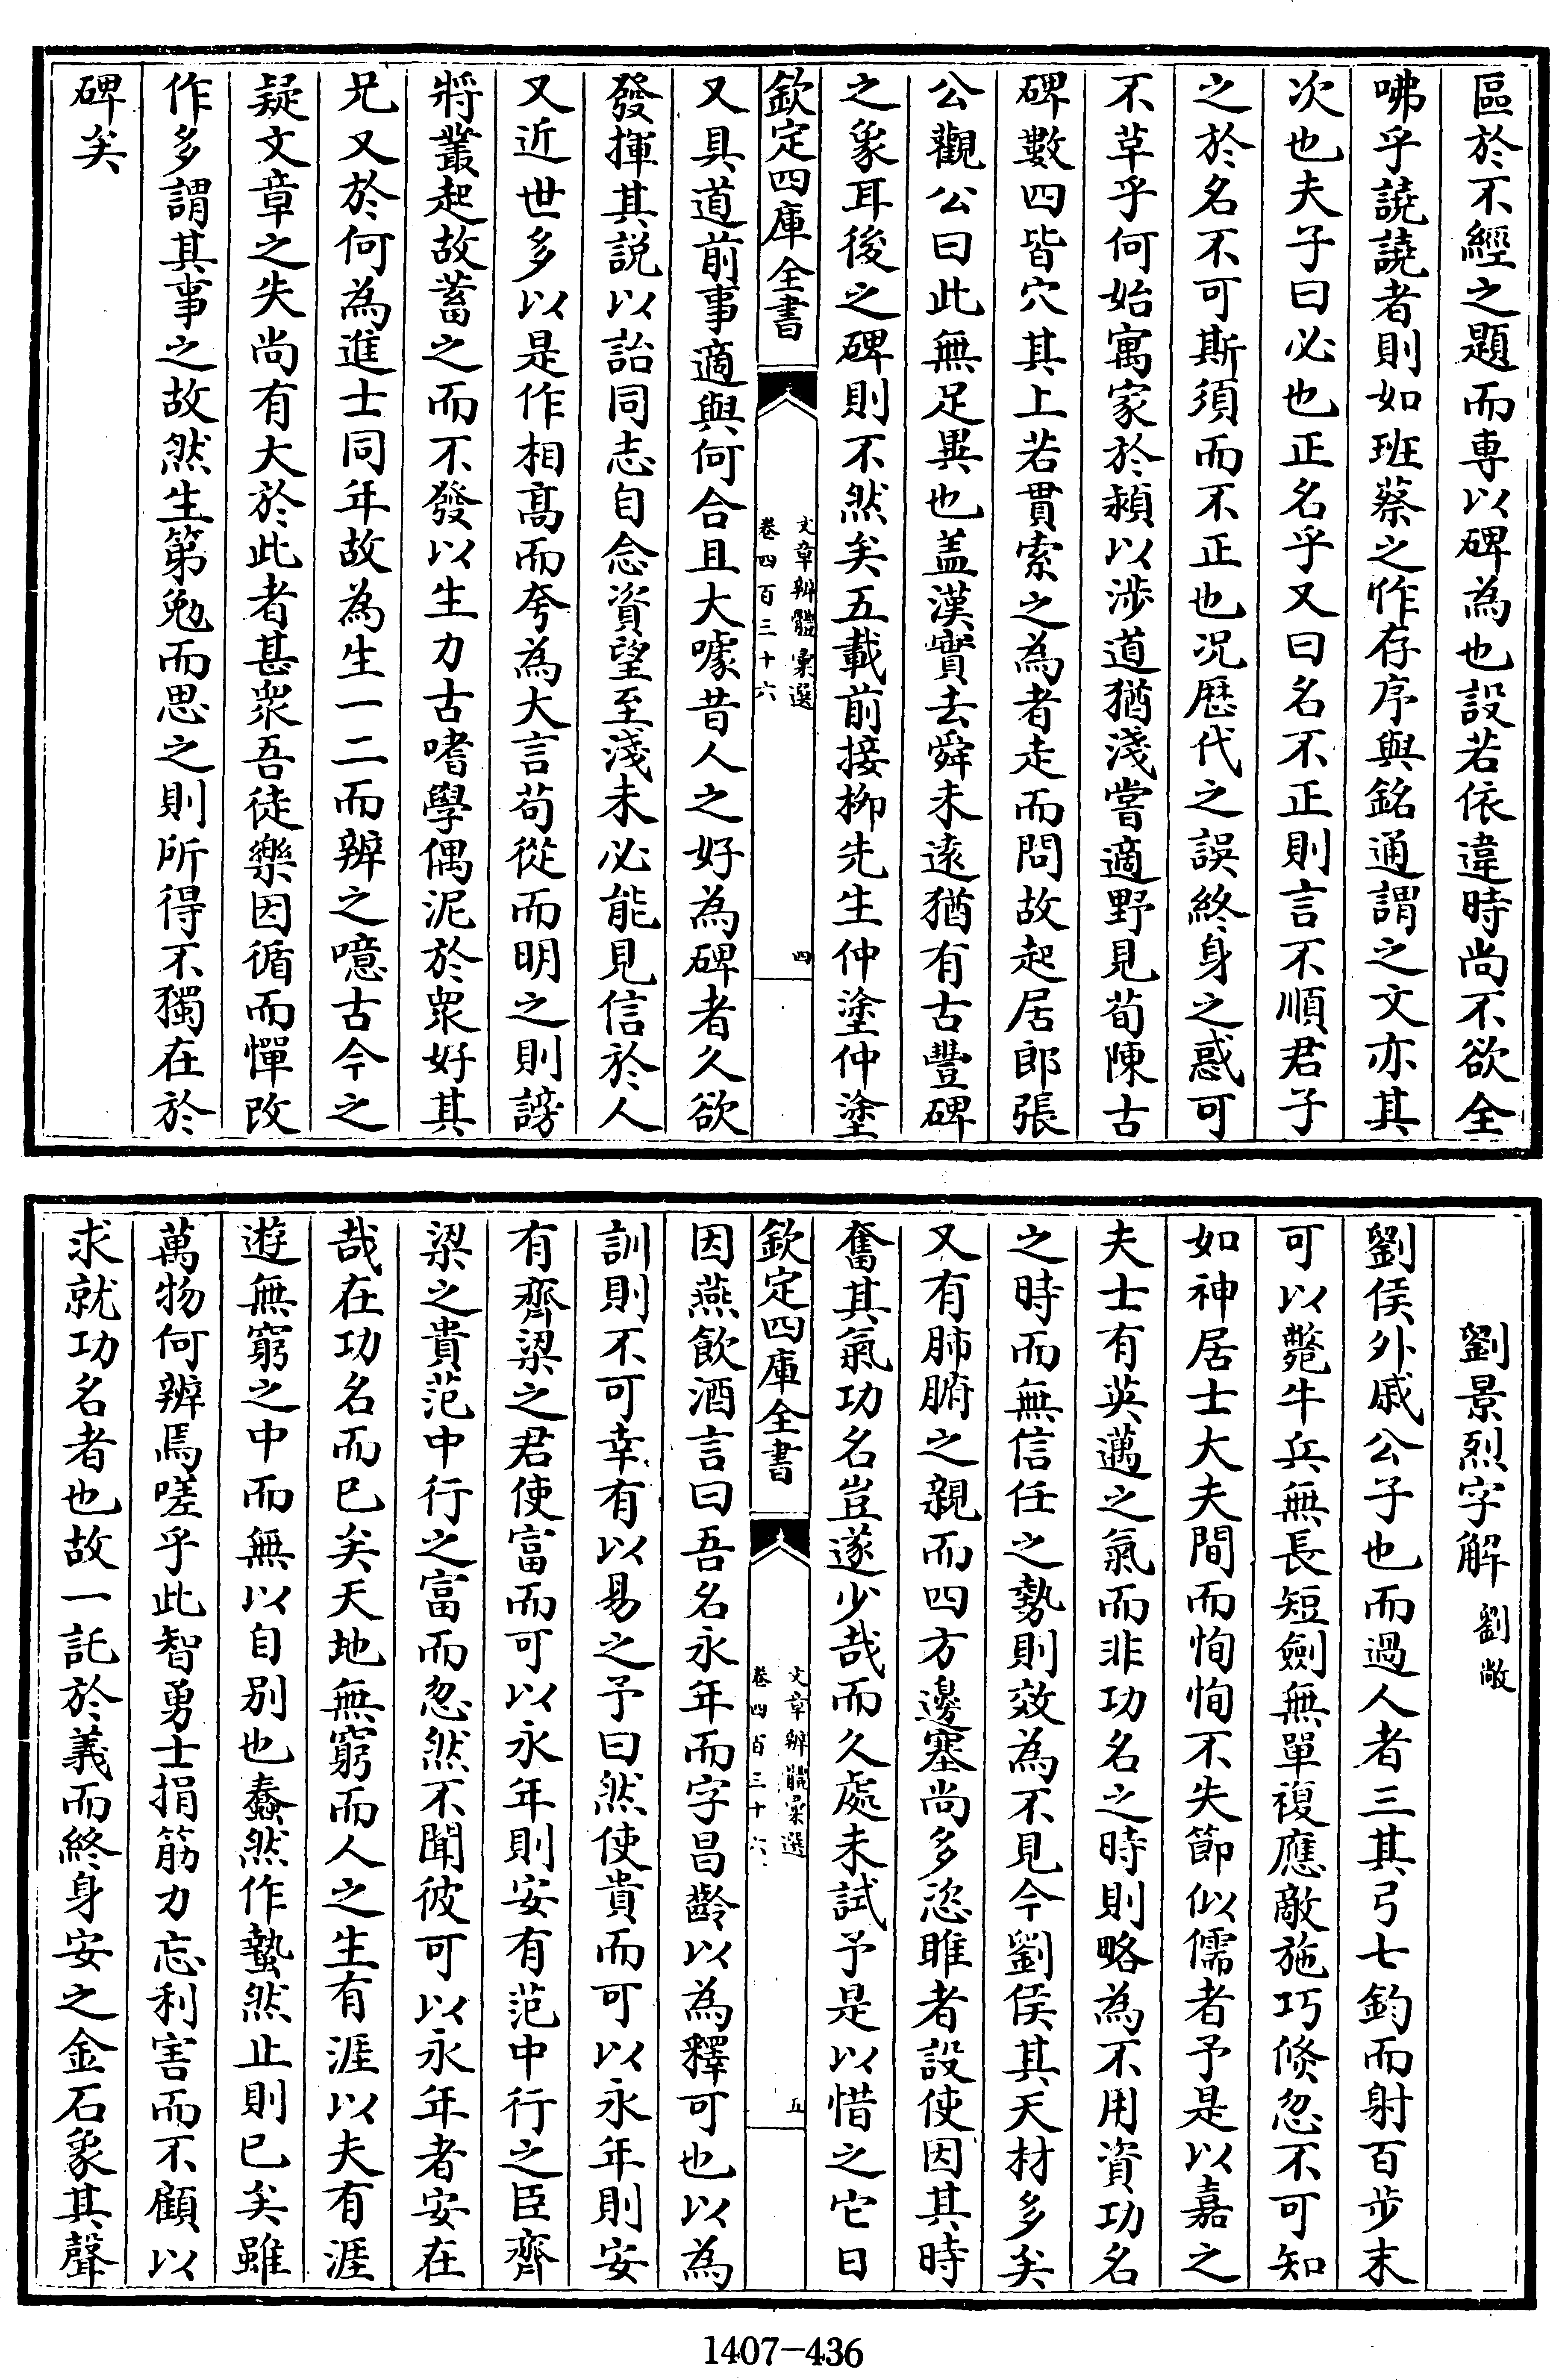 區於不經之題而專以碑為也設若依違時尚不欲全
咈乎譊譊者則如班蔡之作存序與銘通謂之文亦其
次也夫子曰必也正名乎又曰名不正則言不順君子
之於名不可斯須而不正也况歴代之誤終身之惑可
不革乎何始寓家於潁以涉道猶淺嘗適野見荀陳古
碑數四皆穴其上若貫索之為者走而問故起居郎張
公觀公曰此無足異也盖漢實去舜未逺猶有古豐碑
之象耳後之碑則不然矣五載前接栁先生仲塗仲塗
欽定四庫全書
文章辨體彚選
卷四百三十六
四
又具道前事適與何合且大噱昔人之好為碑者久欲
發揮其説以詒同志自念資望至淺未必能見信於人
又近世多以是作相髙而夸為大言苟從而明之則謗
將叢起故蓄之而不發以生力古嗜學偶泥於衆好其
兄又於何為進士同年故為生一二而辨之噫古今之
疑文章之失尚有大於此者甚衆吾徒樂因循而憚改
作多謂其事之故然生第勉而思之則所得不獨在於
碑矣
劉景烈字解 劉敞
劉侯外戚公子也而過人者三其弓七鈞而射百步末
可以斃牛兵無長短劍無單複應敵施巧倐忽不可知
如神居士大夫間而恂恂不失節似儒者予是以嘉之
夫士有英邁之氣而非功名之時則略為不用資功名
之時而無信任之勢則效為不見今劉侯其天材多矣
又有肺腑之親而四方邊塞尚多恣睢者設使因其時
奮其氣功名豈遂少哉而久處未試予是以惜之它日
欽定四庫全書
文章辨體彚選
卷四百三十六
五
因燕飲酒言曰吾名永年而字昌齡以為釋可也以為
訓則不可幸有以易之予曰然使貴而可以永年則安
有齊梁之君使富而可以永年則安有范中行之臣齊
梁之貴范中行之富而忽然不聞彼可以永年者安在
哉在功名而已矣天地無窮而人之生有涯以夫有涯
遊無窮之中而無以自别也蠢然作蟄然止則已矣雖
萬物何辨焉嗟乎此智勇士捐筋力忘利害而不顧以
求就功名者也故一託於義而終身安之金石象其聲
1407-436